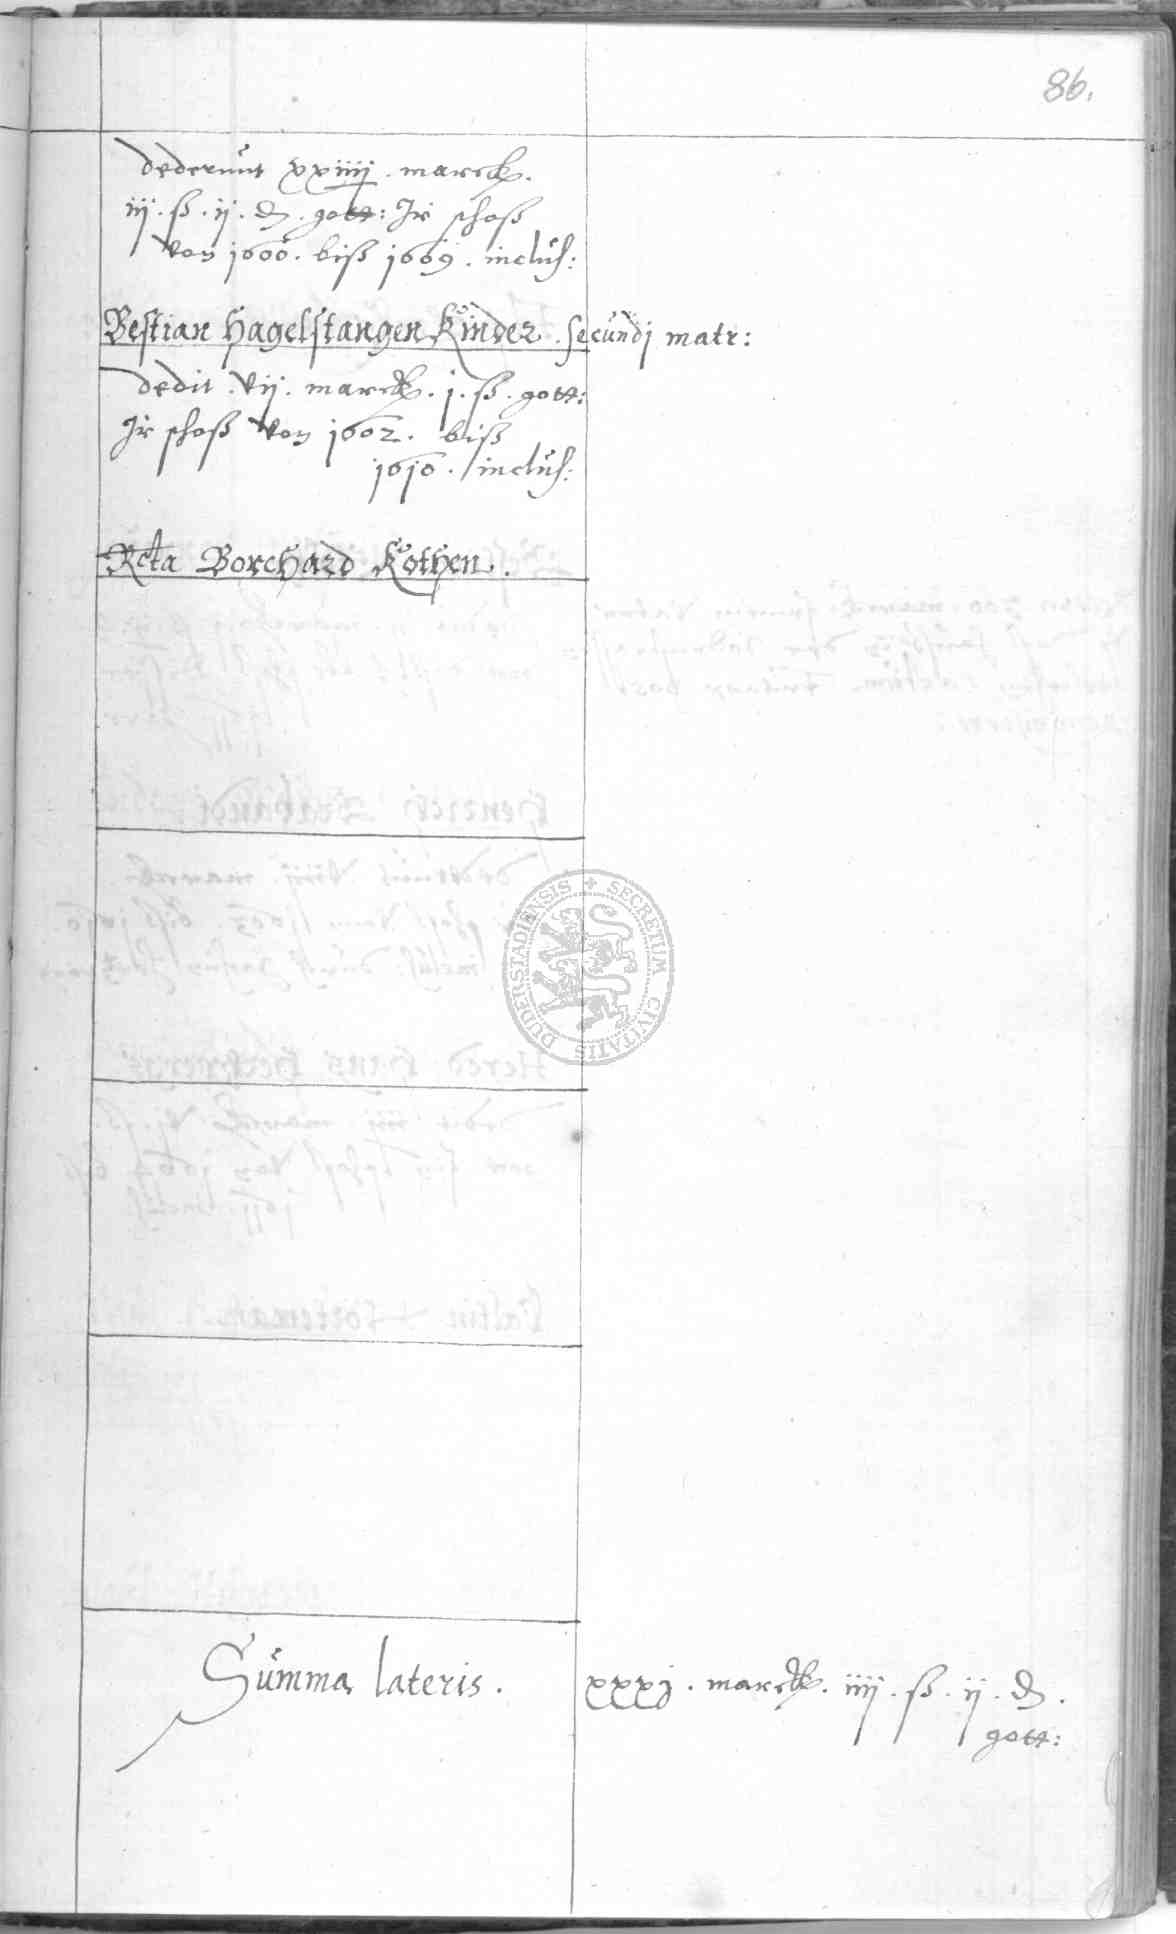 86.
dederunt xxiiij . marck.
iij . ß . ij . d . gott: Ir schoß
von 1600 . biß 1609 . inclus:
Bestian Hagelstangen Kinder . secundj matr:
dedit . vij . marck . j . ß . gott:
Ir schoß von 1602 . biß
1610 . inclus:
Rcta Borchard Kothen .
DUDERSTADIENSIS + SECRETUM CIVITATIS
Summa lateris .
xxxj . marck . iiij . ß . ij . d .
gott: